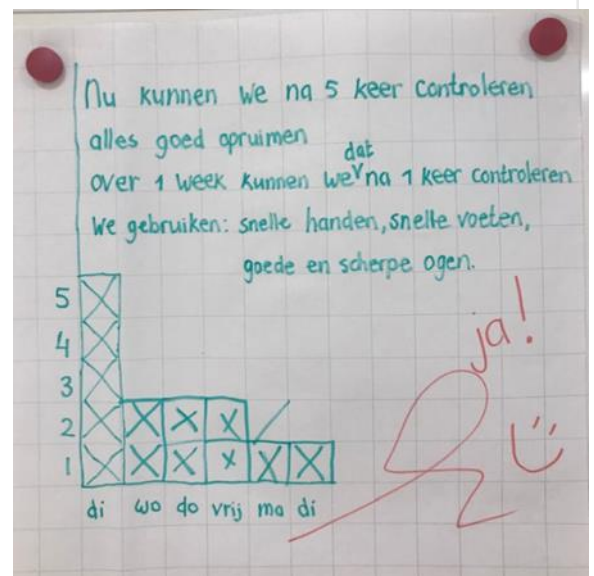 Nu kunnen we na 5 keer controleren
alles goed opruimen
over 1 week kunnen we dat na 1 keer controleren
We gebruiken: snelle handen, snelle voeten,
goede en scherpe ogen.
ja!
5
4
3
2
1
di wo do vrij ma di